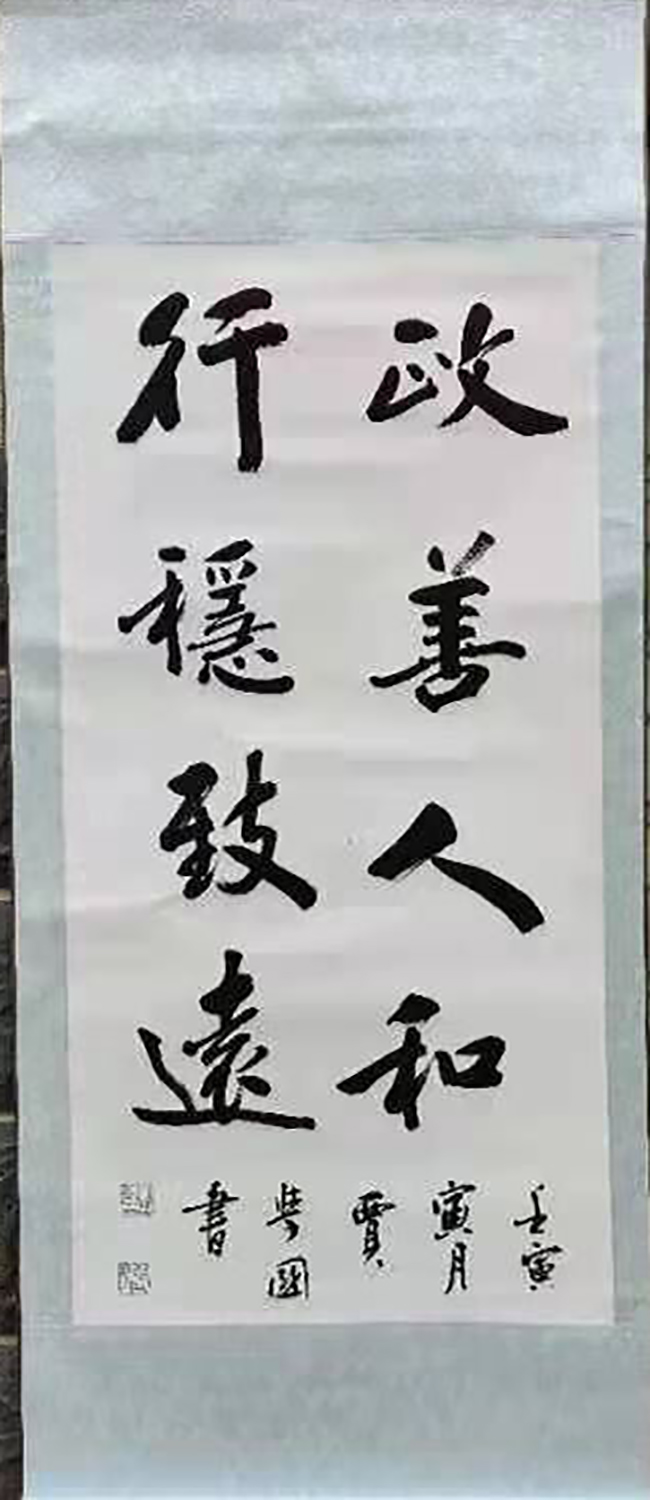 政善人和
行穩致遠
壬寅
寅月
賈
國
書